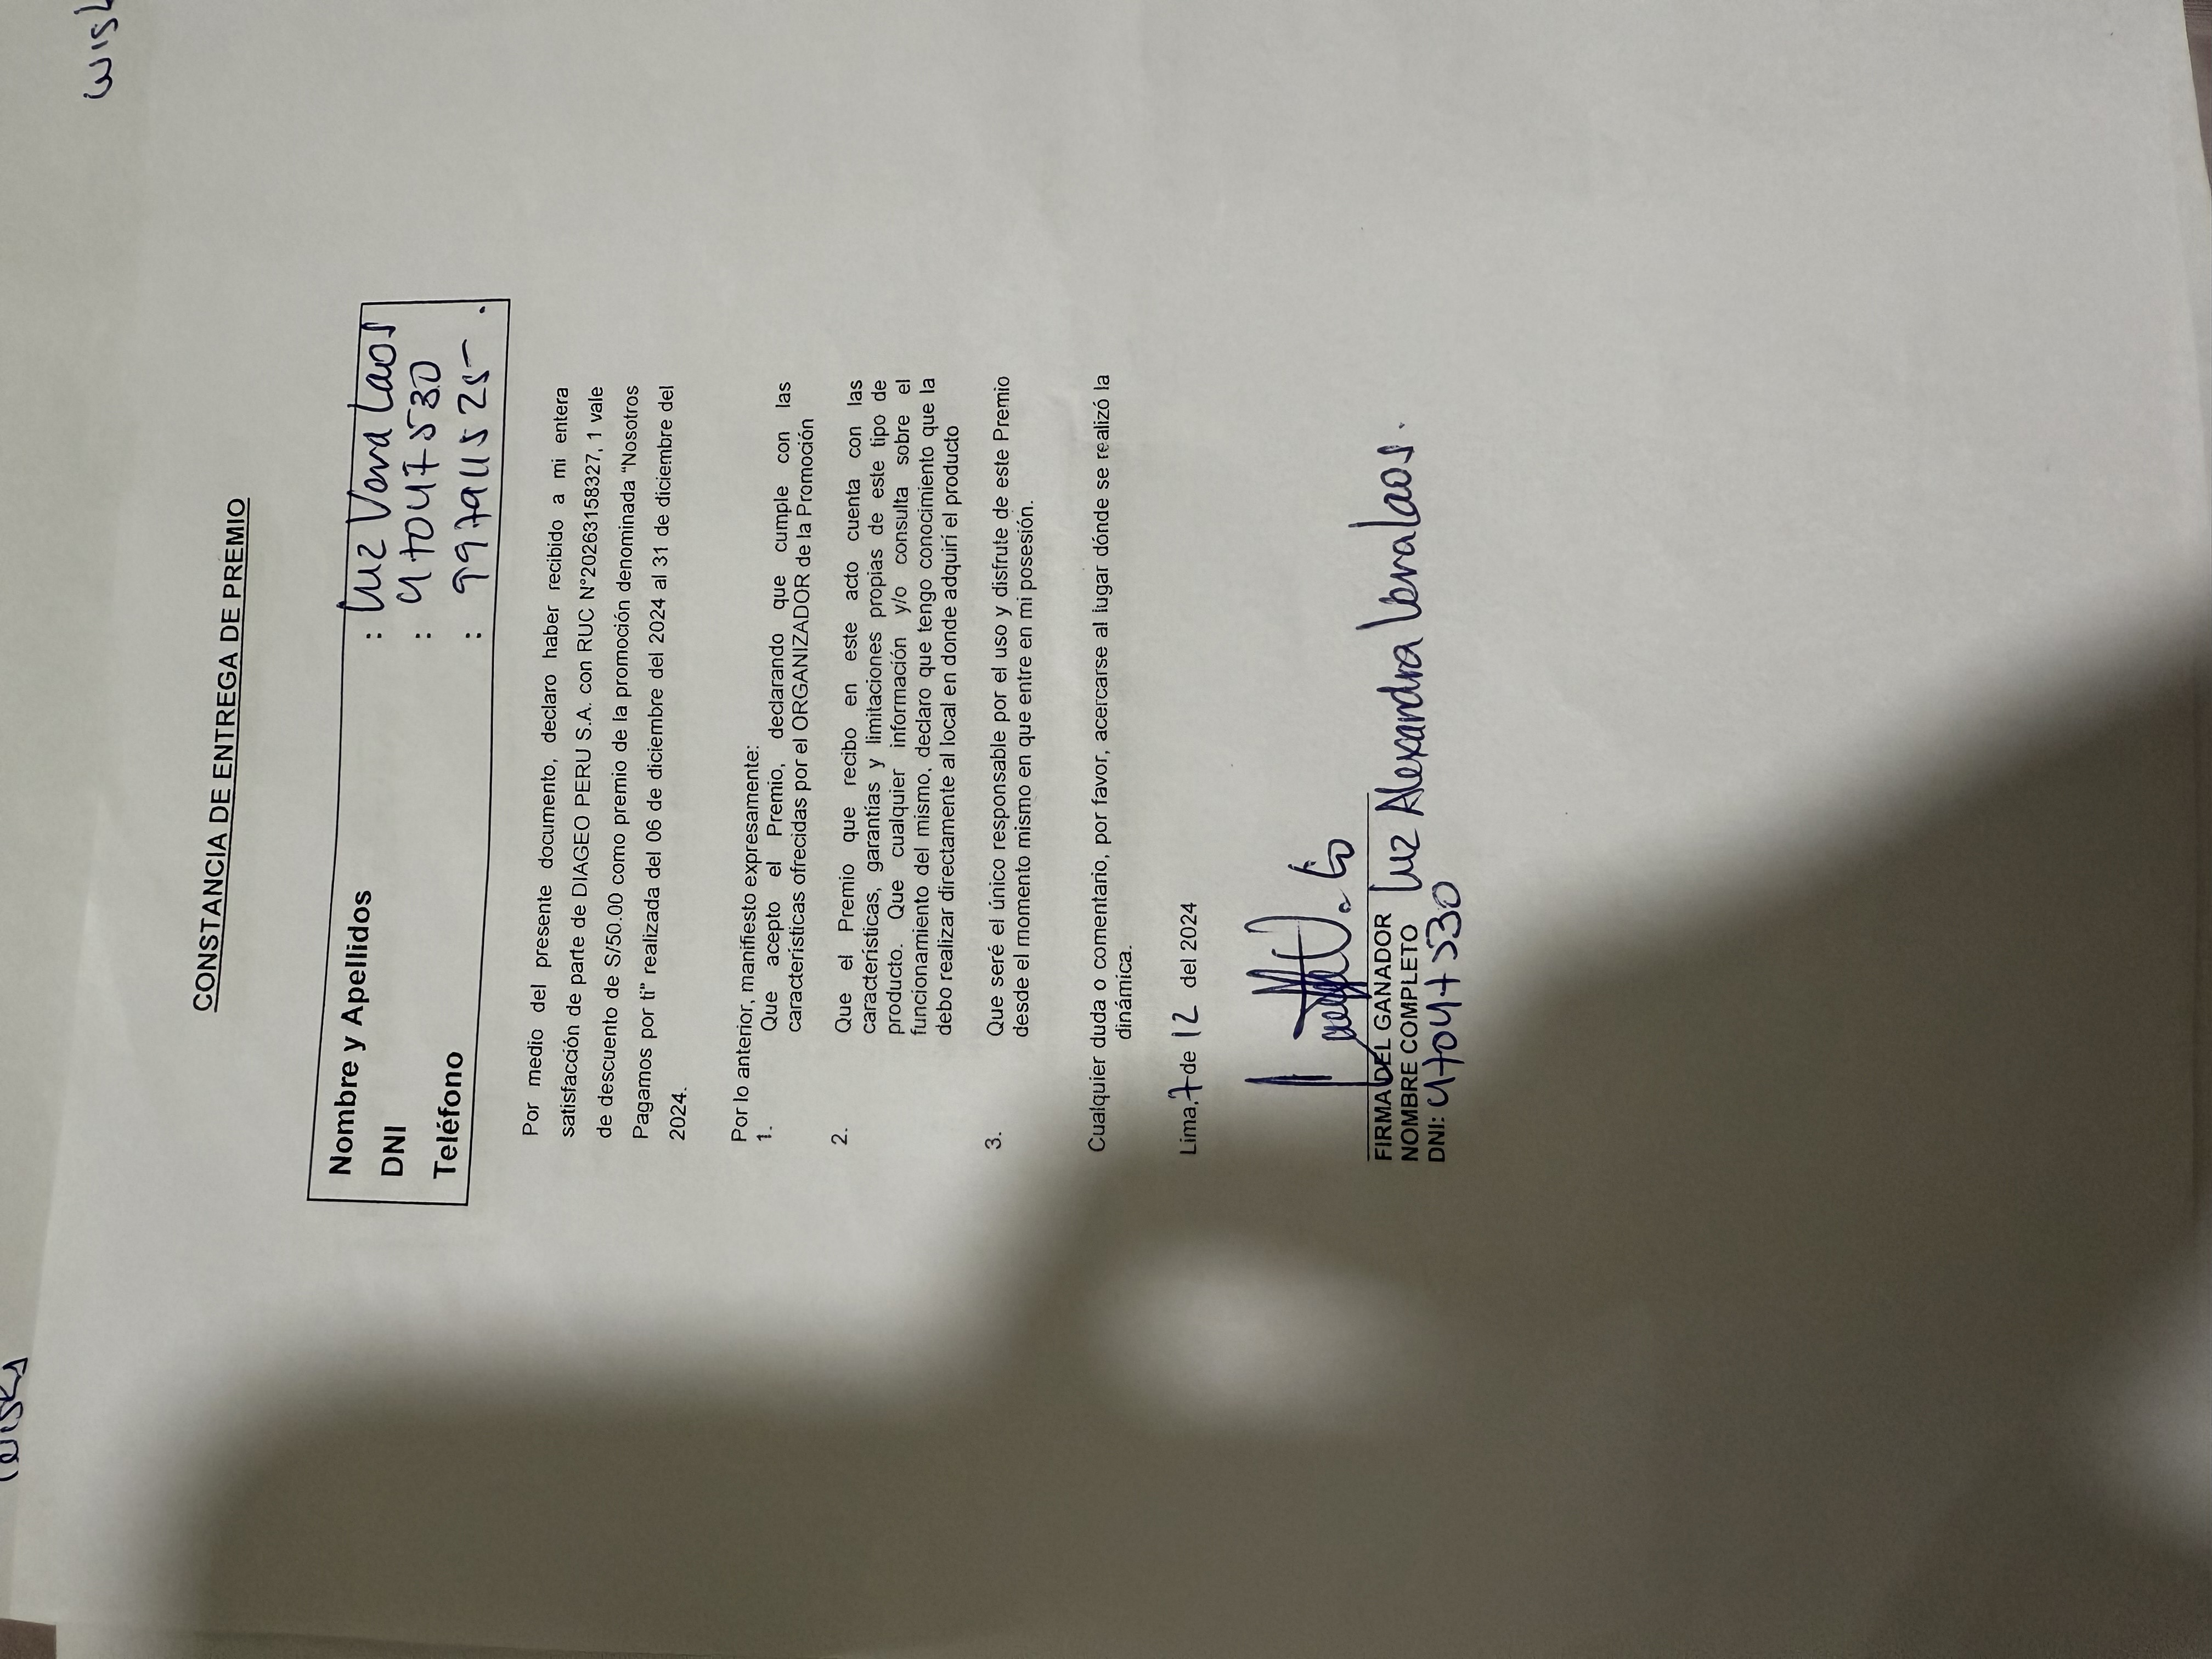 CONSTANCIA DE ENTREGA DE PREMIO
Nombre y Apellidos : Luz Vera Laos
DNI : 47047530
Teléfono : 997911525.
Por medio del presente documento, declaro haber recibido a mi entera
satisfacción de parte de DIAGEO PERU S.A. con RUC N°20263158327, 1 vale
de descuento de S/50.00 como premio de la promoción denominada “Nosotros
Pagamos por ti” realizada del 06 de diciembre del 2024 al 31 de diciembre del
2024.
Por lo anterior, manifiesto expresamente:
1. Que acepto el Premio, declarando que cumple con las
características ofrecidas por el ORGANIZADOR de la Promoción
2. Que el Premio que recibo en este acto cuenta con las
características, garantías y limitaciones propias de este tipo de
producto. Que cualquier información y/o consulta sobre el
funcionamiento del mismo, declaro que tengo conocimiento que la
debo realizar directamente al local en donde adquirí el producto
3. Que seré el único responsable por el uso y disfrute de este Premio
desde el momento mismo en que entre en mi posesión.
Cualquier duda o comentario, por favor, acercarse al lugar dónde se realizó la
dinámica.
Lima, 7 de 12 del 2024
FIRMA DEL GANADOR
NOMBRE COMPLETO Luz Alexandra Vera Laos.
DNI: 47047530